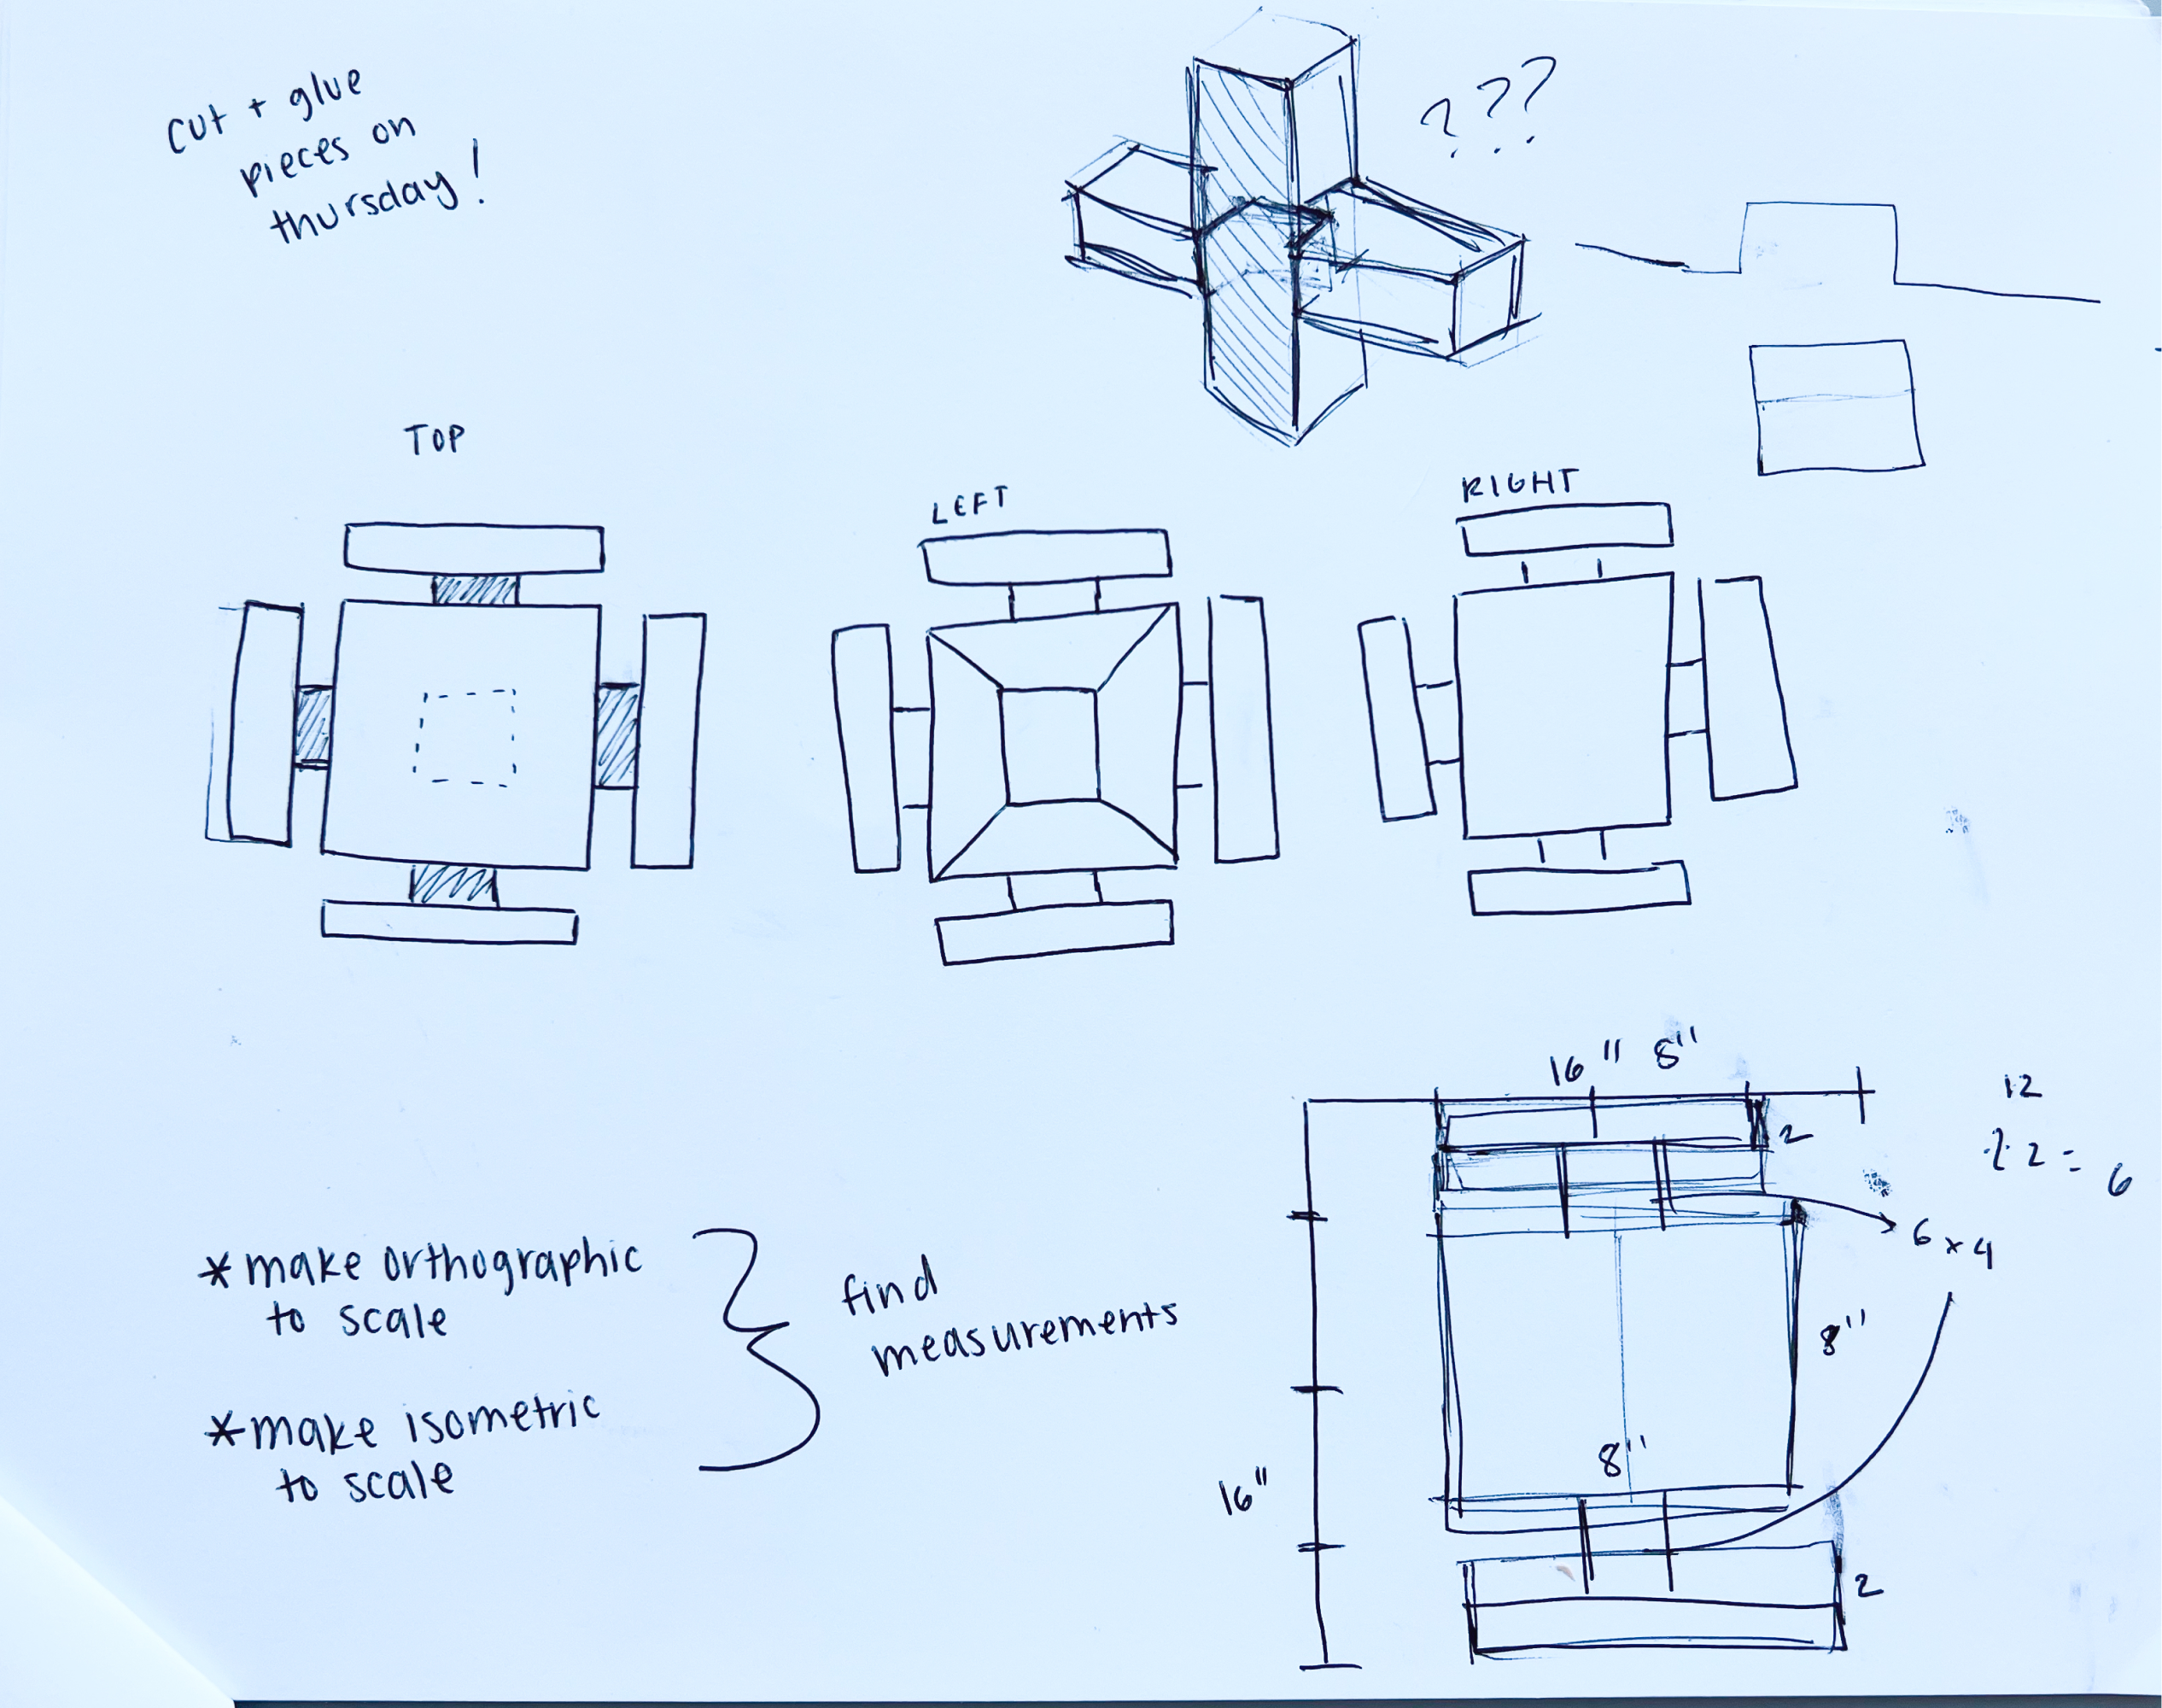 cut + glue
pieces on
thursday!
???
TOP
LEFT
RIGHT
16" 8"
12
2
÷ 2 = 6
6 x 4
8"
8"
16"
2
*make orthographic
to scale
*make isometric
to scale
find
measurements